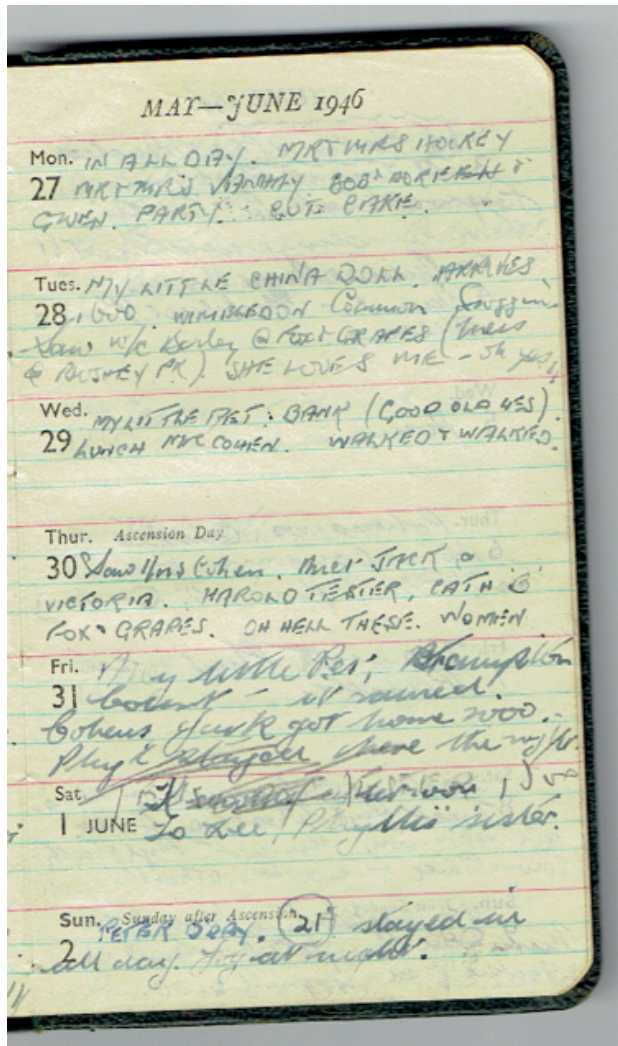 MAY—JUNE 1946
Mon. IN ALL DAY. MR & MRS HOCKEY
27 MR & MRS BOB & &
GWEN. PARTY. CUT CAKE.
Tues. MY LITTLE CHINA DOLL. ARRIVES
28 1600. WIMBLEDON Common
Saw W/C @ FOX & GRAPES (
@ BUSHEY PK). SHE LOVES ME - oh yes
Wed. MY LITTLE PET. BANK (GOOD OLD 4ES)
29 LUNCH COHEN. WALKED & WALKED.
Thur. Ascension Day
30 Saw Cohen. Met JACK @
VICTORIA. HAROLD TESTER, CATH @
FOX & GRAPES. OH HELL THESE. WOMEN
Fri. My little Pet,
31 Court - it rained.
Cohens Jack got home 2000.
Phyl stayed here the night.
Sat.
1 JUNE To see Phyllis' sister.
Sun. Sunday after Ascension
PETER 21 stayed in
2 all day. Joy at night.